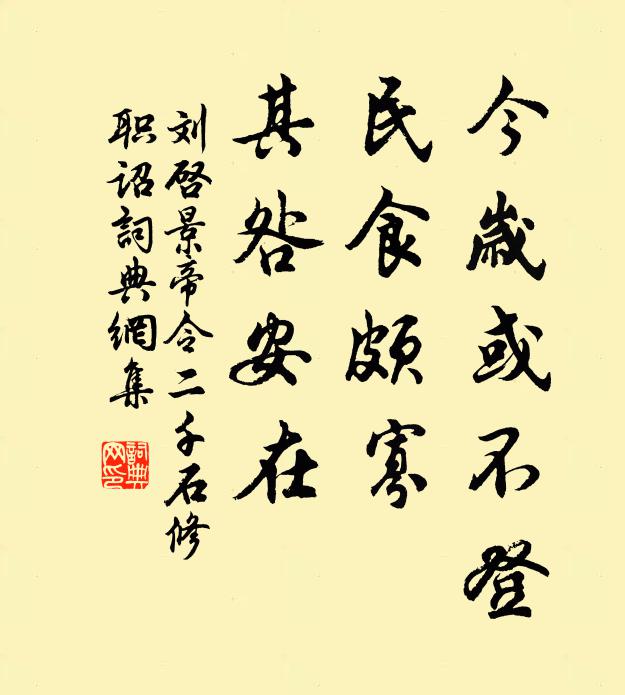 今歳或不登
民食頗寡
其咎安在
刘啓景帝令二千石修
职詔詞典網集
詞典
网印